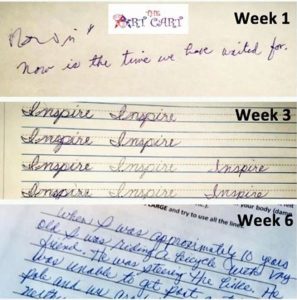 THE ART CART
Week 1
Now is the time we have waited for.
Week 3
Inspire Inspire
Inspire Inspire
Inspire Inspire Inspire
Inspire Inspire Inspire
your body (dam
LARGE and try to use all the lines
Week 6
When I was approximately 10 years
old I was riding a bicycle with my
friend. He was steering the bike. He
was unable to get past a
pole and we